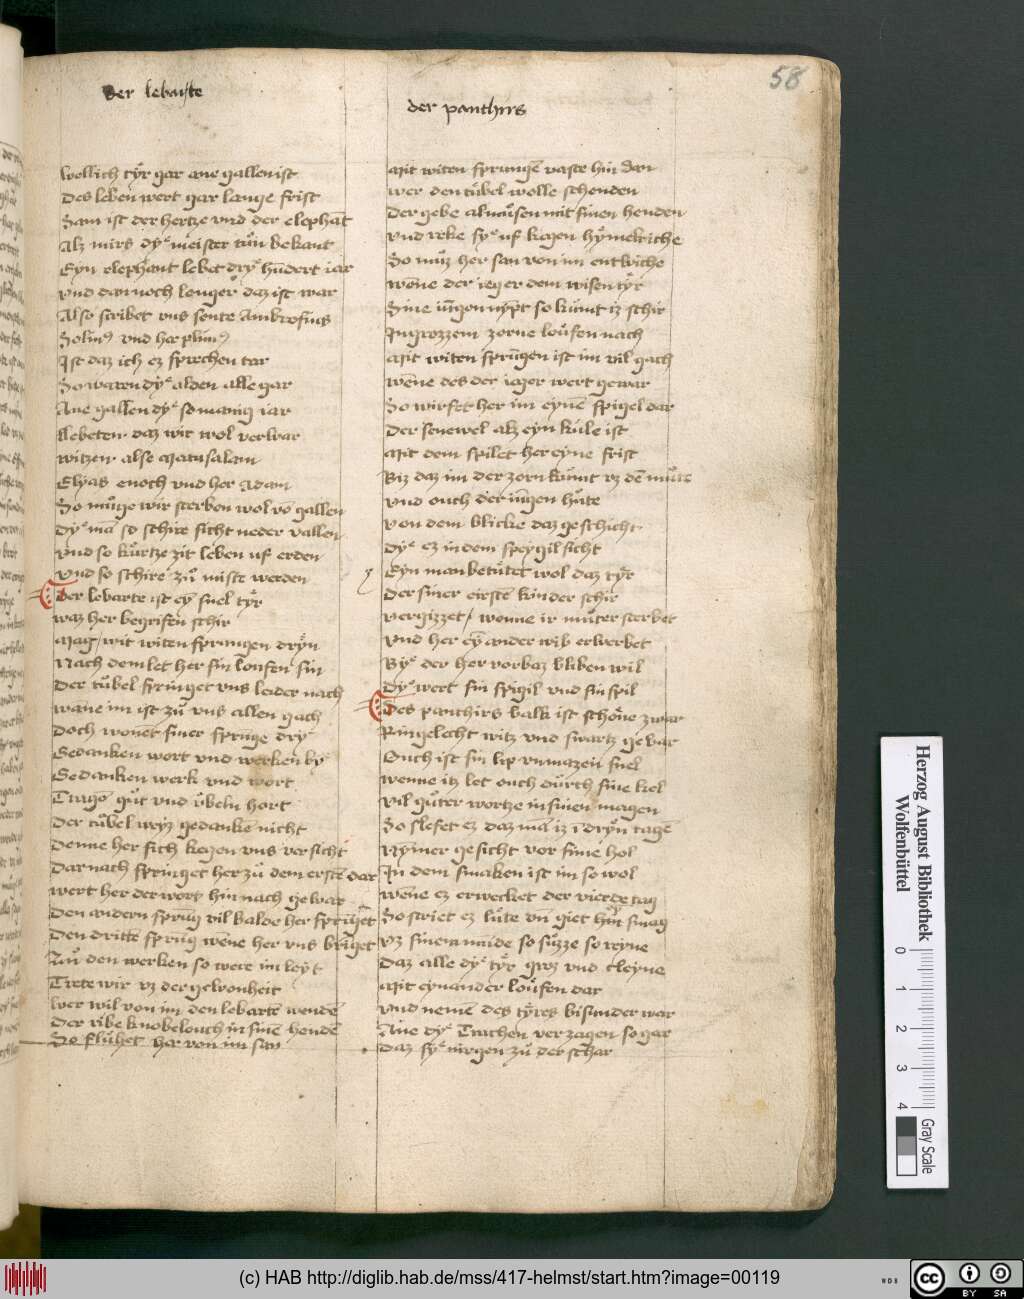 der lebarte
der panthirs
58
wollich tyr gar ane gallen ist
Des leben wert gar lange frist
Sam ist der hertze vnd der elephat
Alz mirs dy meister tun bekant
Eyn elephant lebet dry hundert iar
vnd dannoch lenger daz ist war
Also scribet vns sente Ambrosius
Solin⁹ vnd her plini⁹
Ist daz ich ez sprechen tar
So waren dy alden alle gar
Ane gallen dy so manig iar
lebeten daz wir wol verwar
witzen alse Matusalam
Elyas enoch vnd her Adam
So muge wir sterben wol vō gallen
dy mā so schire sicht neder vallen
vnd so kurtze zit leben uf erden
vnd so schire zu miste werden
Der lebarte ist eȳ snel tyr
waz her begrifen schir
Mag / mit witen sprungen dryn
Nach dem let her sin loufen sin
Der tubel springet vns leider nach
wane im ist zu vns allen gach
Doch wonet siner spruge dry
Gedanken wort vnd werken by
Gedanken werk vnd wort
Tragē gut vnd vbeln hort
Der tubel weyz gedankē nicht
Denne her sich kegen vns versicht
Dar nach springet her zu dem erstē dar
wert her der wort hin nach gewar
Den andern sprūg vil balde her sprīget
Den dritte sprūg wēne her vns brīget
Zu den werken so were im leyt
Trete wir vz der gewonheit
wer wil von im den lebartē wendē
Der ribe knobelouch in sinē hendē
So fluhet her von im san
Mit witen sprungē vaste hin dan
wer den tubel wolle schenden
Der gebe almusen mit sinen henden
vnd reke sy uf kegen hymelriche
So muz her san von im entwiche
wēne der ieger dem wisen tyr
Sine iūgen nȳpt so kumt iz schir
In grozzem zorne loufen nach
Mit witen sprūgen ist im vil gach
wēne des der iager wert gewar
So wirfet her im eynē spigel dar
Der senewel alz eyn kule ist
Mit dem spilet her eyne frist
Biz daz im der zorn kumt vz dē mute
vnd ouch der iūgen hute
von dem blicke daz geschicht
Dy ez in dem speygil sicht
Eyn man betutet wol daz tyr
Der siner eirstē kinder schir
vergizzet / wenne ir muter sterbet
vnd her eȳ ander wib erwerbet
By der her vorbaz bliben wil
Dy wert sin spigil vnd sin spil
Des panthirs balk ist schone zwar
Ringelecht wiz vnd swartz gevar
Ouch ist sin lip vnmazen snel
wenne iz let ouch durch sine kel
vil guter wortze in sinen magen
So slefet ez daz mā iz ī dryn tagē
Nymer gesicht vor sime hol
In dem smaken ist im so wol
wēne ez erwecket der vierde tag
So scriet ez lute vn̄ giet hin smag
vz sinem mūde so suzze so reyne
Daz alle dy tyr groz vnd cleyne
Mit eynander loufen dar
vnd nemē des tyres bisunder war
Ane dy Trachen verzagen so gar
daz sy nirgen zu der schar
Herzog August Bibliothek
Wolfenbüttel
0 1 2 3 4
Gray Scale
(c) HAB http://diglib.hab.de/mss/417-helmst/start.htm?image=00119
WDB
cc BY SA